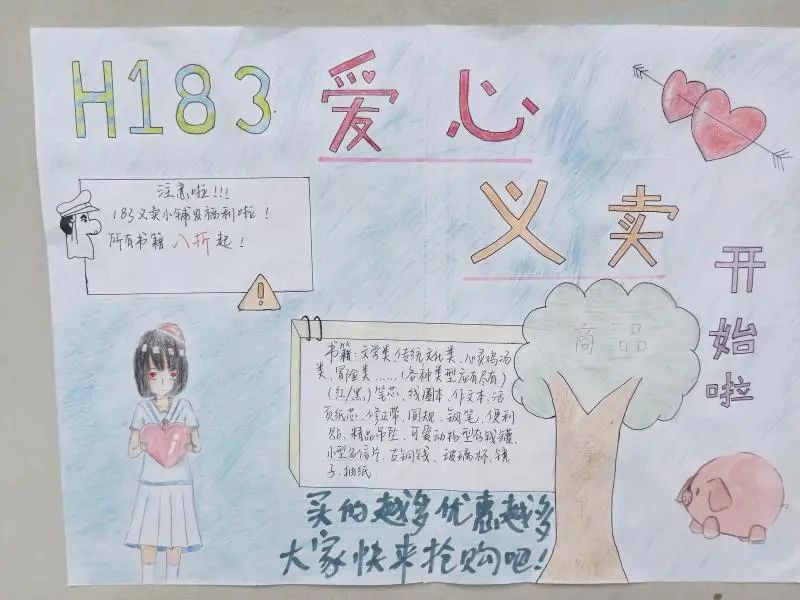 H183 爱心
义卖
开始啦
注意啦!!!
183义卖小铺发福利啦!
所有书籍 八折起!
商品
书籍:文学类,传统文化类,心灵鸡汤
类,冒险类……(各种类型应有尽有)
(红/黑)笔芯、线圈本、作文本、活
页纸芯、修正带、圆规、钢笔、便利
贴、精品吊坠、可爱动物型存钱罐、
小型名信片、古铜钱、玻璃杯、镜
子、抽纸.
买的越多优惠越多
大家快来抢购吧!